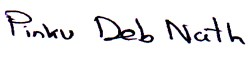 Pinku Deb Nath